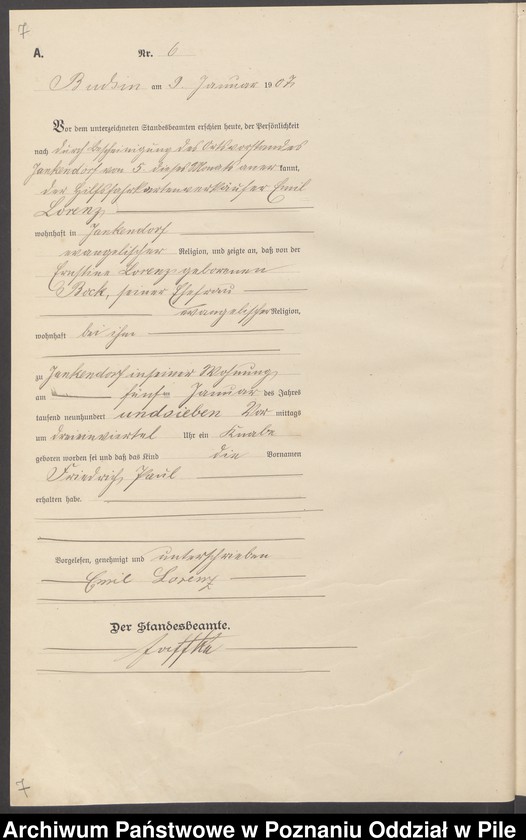 7
A. Nr. 6
Budsin am 9. Januar 1907
Vor dem unterzeichneten Standesbeamten erschien heute, der Persönlichkeit
nach durch Bescheinigung des Ortsvorstandes
Jankendorf vom 5. dieses Monats aner kannt,
der Hilfsfahrkartenverkäufer Emil
Lorenz
wohnhaft in Jankendorf
evangelischer Religion, und zeigte an, daß von der
Ernstine Lorenz geborenen
Bock, seiner Ehefrau
evangelischer Religion,
wohnhaft bei ihm
zu Jankendorf in seiner Wohnung
am fünften Januar des Jahres
tausend neunhundert und sieben Vor mittags
um dreieinviertel Uhr ein Knabe
geboren worden sei und daß das Kind die Vornamen
Friedrich Paul
erhalten habe.
Vorgelesen, genehmigt und unterschrieben
Emil Lorenz
Der Standesbeamte.
7
Archiwum Państwowe w Poznaniu Oddział w Pile